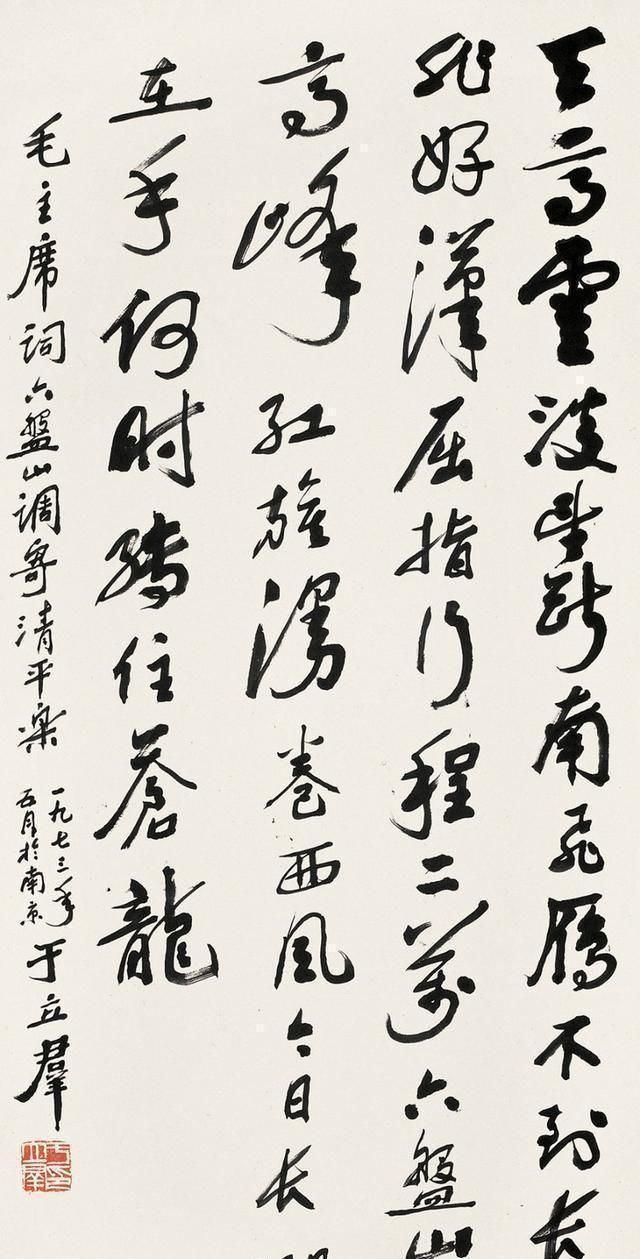 天高雲淡望斷南飛雁不到长
非好漢屈指行程二萬六盤山
高峰紅旗漫卷西风今日长
在手何时縛住蒼龍
毛主席词六盤山调寄清平樂
一九七三年
五月於南京
于立群